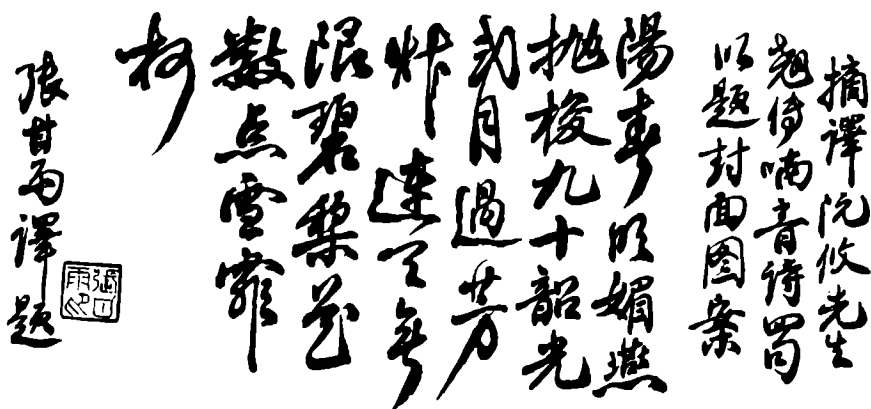 摘譯阮攸先生
翹傳喃音詩四句
以題封面图案
陽春明媚燕
抛梭九十韶光
弍月過芳
艸連天無
限碧梨花
數点雪霏
柯
張甘雨譯題
張甘雨印